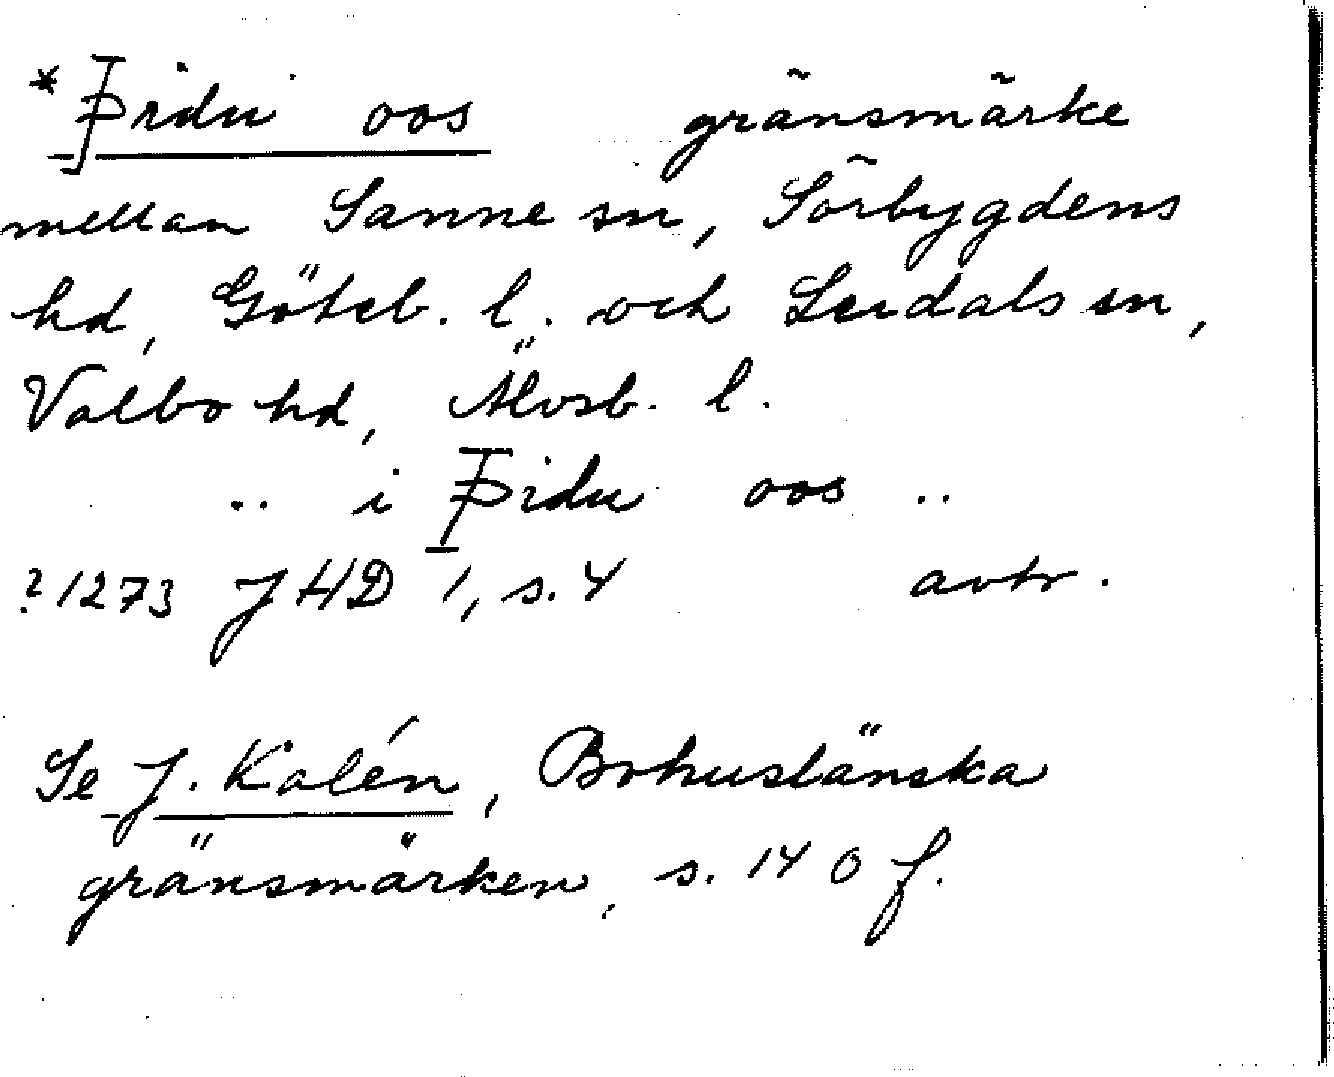 *Þidu oos gränsmärke
mellan Sanne sn, Sörbygdens
hd, Göteb. l. och Lerdals sn,
Valbo hd, Älvsb. l.
.. i Þidu oos ..
?1273 JHD 1, s. 4 avtr.
Se J. Kalén, Bohuslänska
gränsmärken, s. 140 f.